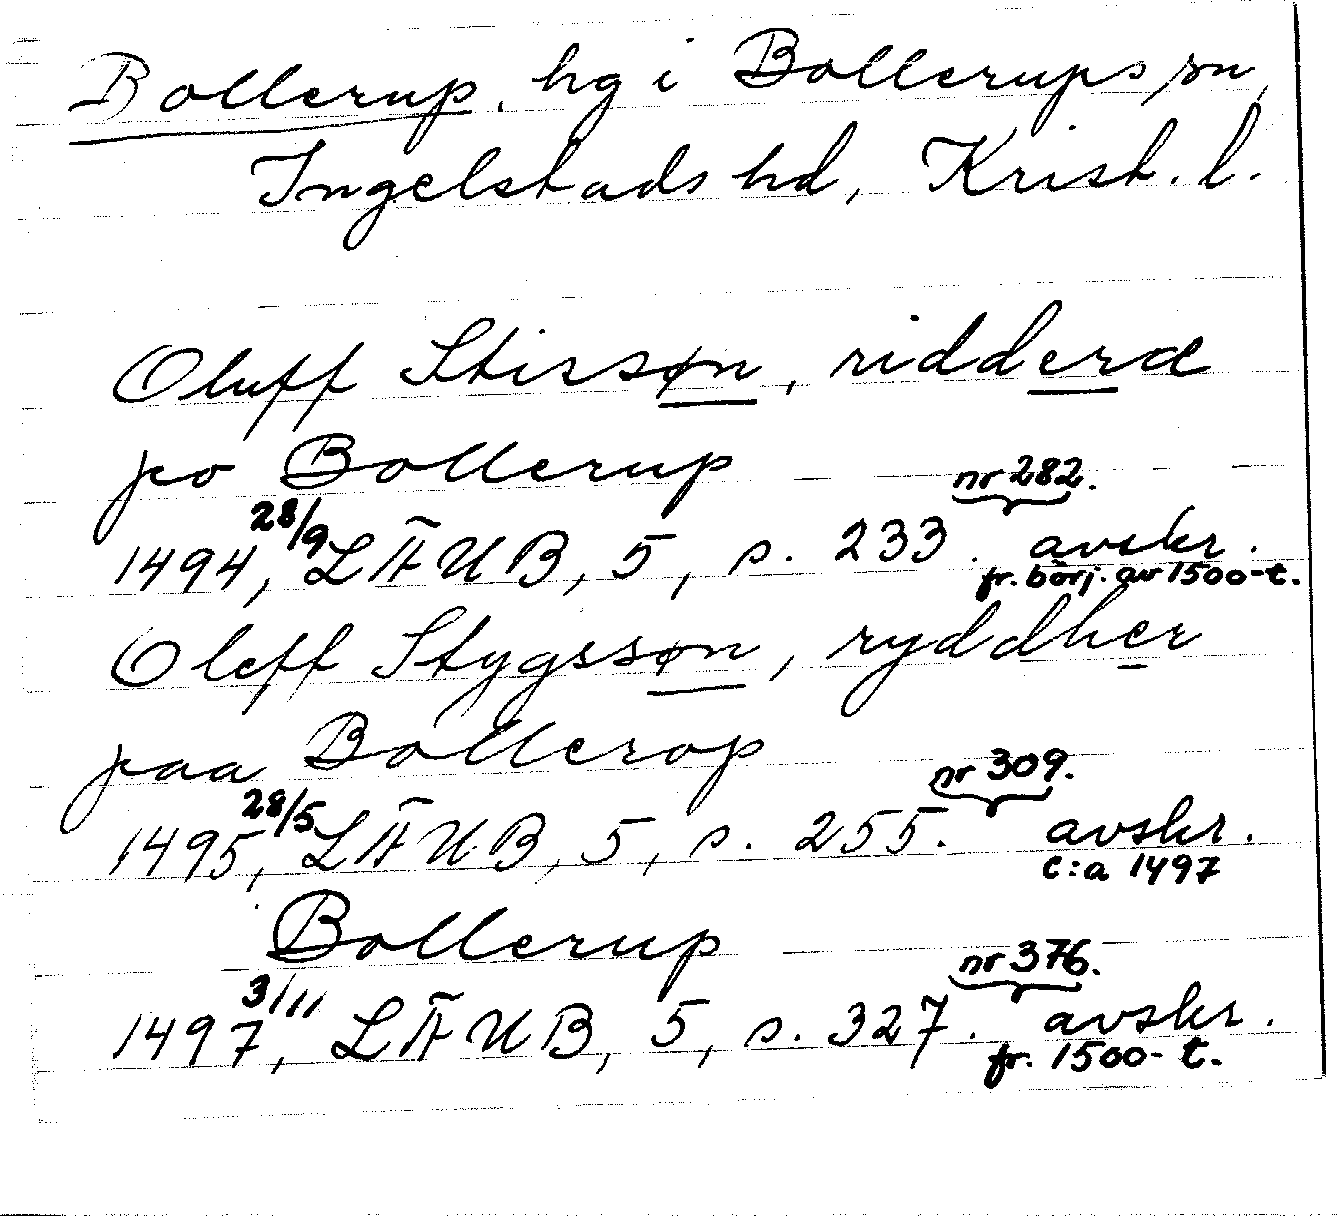 Bollerup, hg i Bollerups sn,
Ingelstads hd, Krist. l.
Oluff Stissøn, ridderæ
po Bollerup nr 282.
1494 28/9, LÄUB, 5, s. 233. avskr.
fr. börj. av 1500-t.
Oleff Stygssøn, ryddher
paa Bollerop nr 309.
1495 28/5, LÄUB, 5, s. 255. avskr.
c:a 1497
Bollerup nr 376.
1497 3/11, LÄUB, 5, s. 327. avskr.
fr. 1500-t.